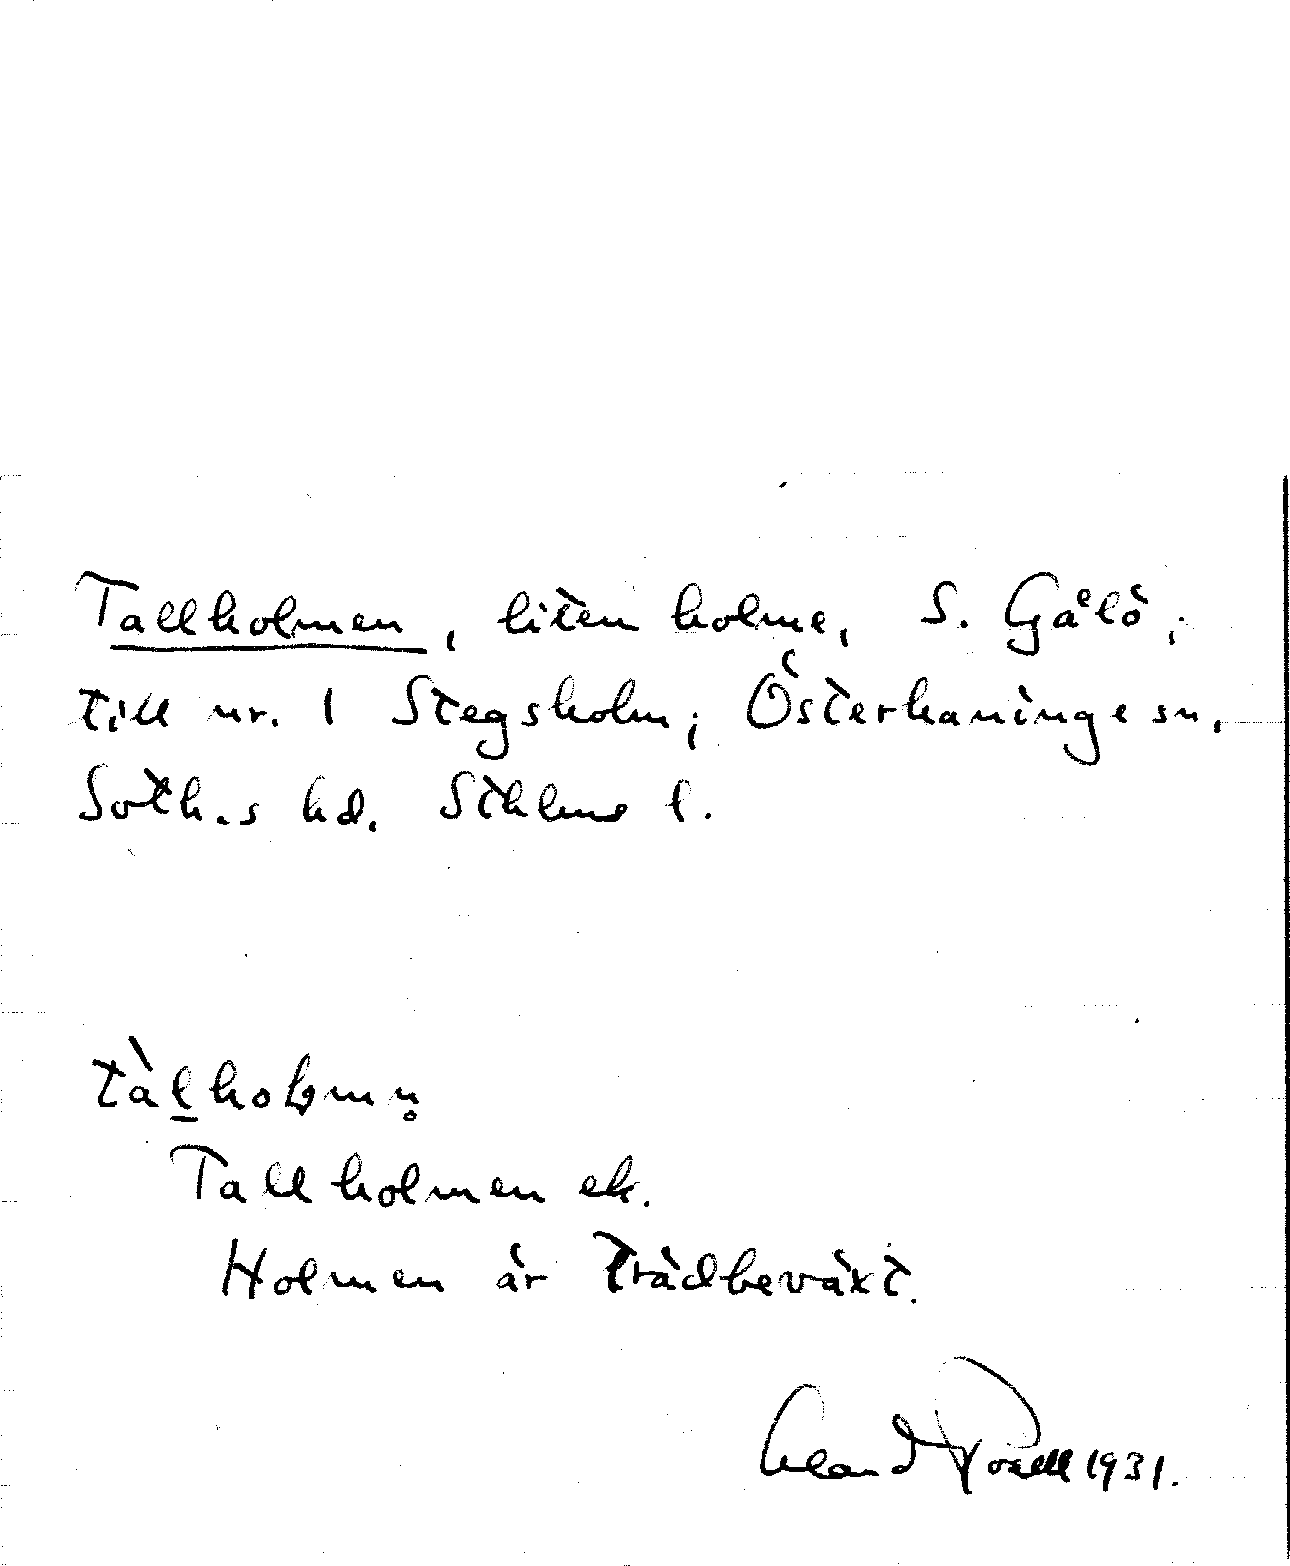 Tallholmen, liten holme, S. Gålö,
till nr. 1 Stegsholm; Österhaninge sn,
Soth.s hd. Sthlms l.
tàl̲holmn̥
Tallholmen ek.
Holmen är trädbeväxt.
1931.